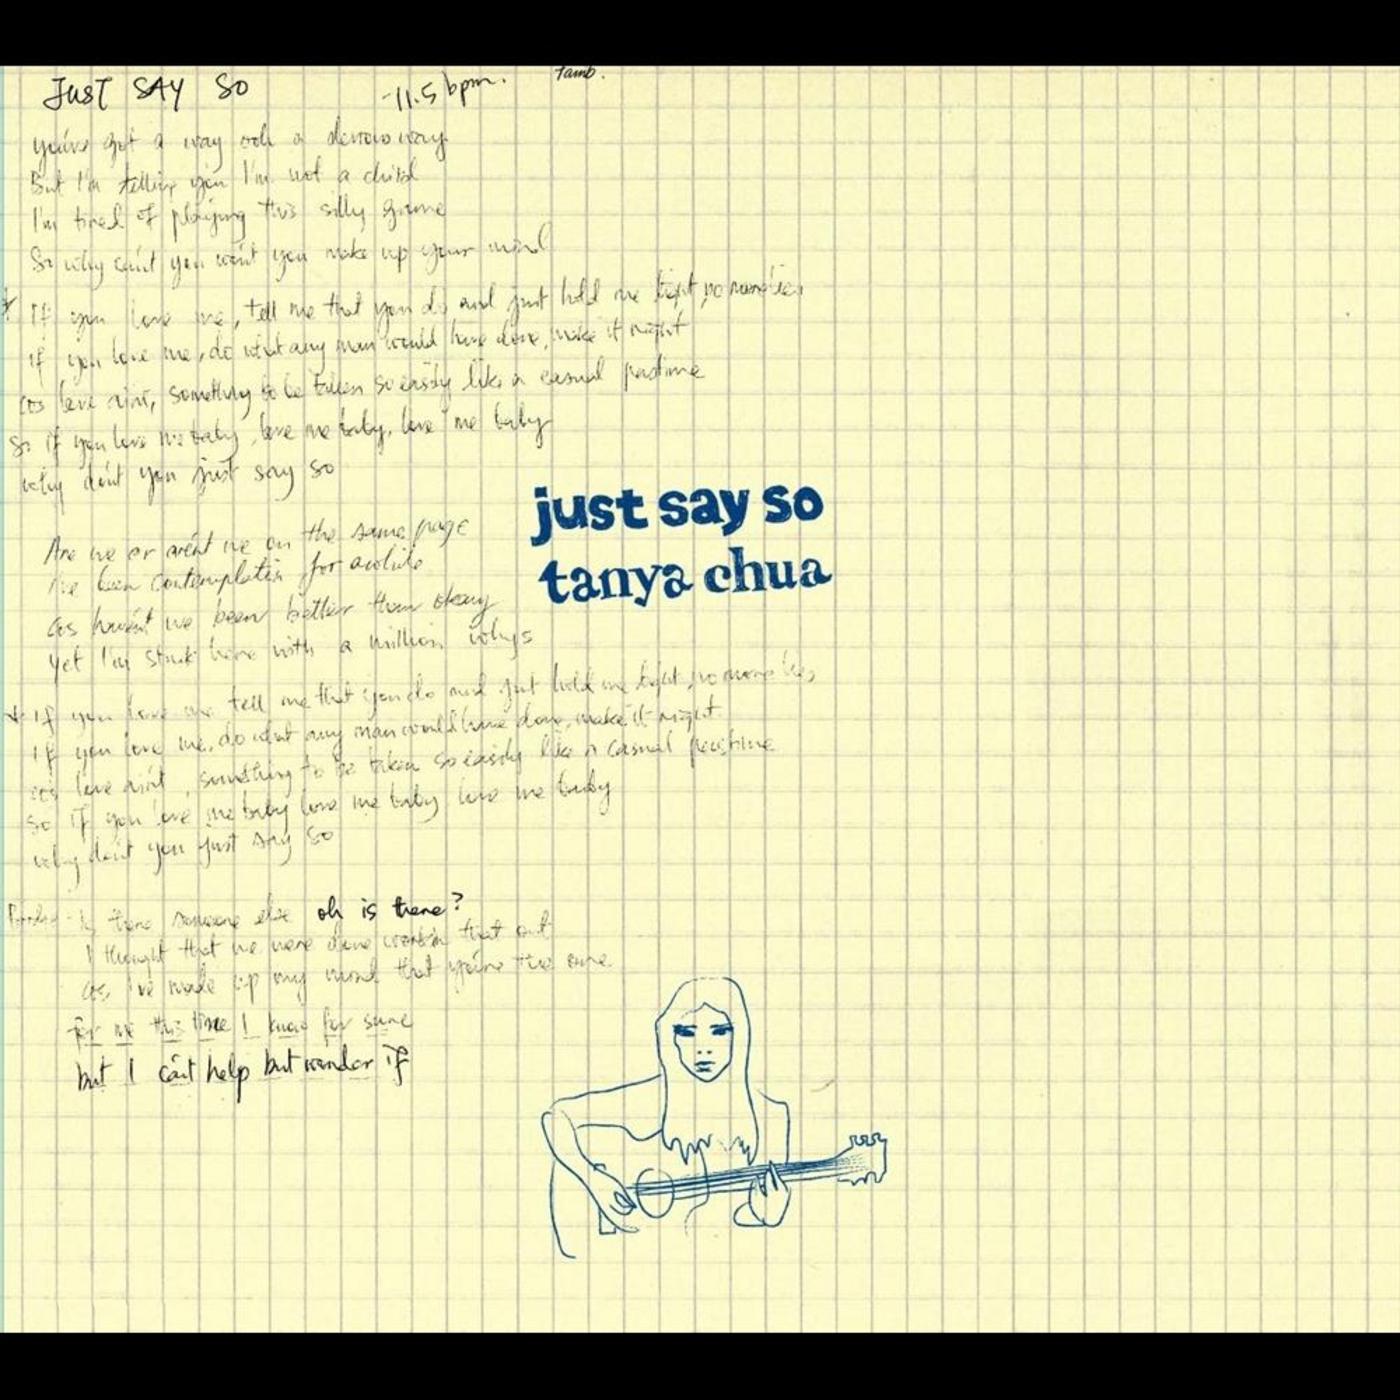 JUST SAY SO
11.5 bpm.
Tamb.
you've got a way ooh a way
But I'm telling you I'm not a child
I'm tired of playing this silly game
So why can't you won't you make up your mind
If you love me, tell me that you do and just hold me tight, no more lies,
if you love me, do what any man would have done, make it right
cos love ain't, something to be taken so easily like a casual pastime
So if you love me baby, love me baby, love me baby
why don't you just say so
just say so
tanya chua
Are we or aren't we on the same page
I've been contemplatin for awhile
cos haven't we been better than okay
yet I'm stuck here with a million whys
* If you love me tell me that you do and just hold me tight, no more lies,
If you love me, do what any man would have done, make it right.
cos love ain't, something to be taken so easily like a casual pastime
so if you love me baby love me baby love me baby
why don't you just say so
Is there someone else oh is there?
I thought that we were done workin that out
cos I've made up my mind that you're the one
for me this time I know for sure
but I can't help but wonder if